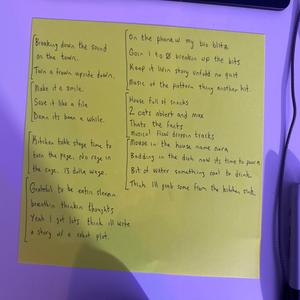 Breaking down the sound
on the town.
Turn a frown upside down.
Make it a smile.
Save it like a file
Damn its been a while.
Kitchen table stage time to
turn the page. No rage in
the cage. 13 dolla wage.
Grateful to be eatin sleepin
breathin thinkin thoughts
Yeah I got lots think ill write
a story w/ a robot plot.
On the phone w/ my bro blitz
Goin 1 to 0 breakin up the bits
Keep it livin story untold no quit
Music of the pattern thing another hit.
House full of snacks
2 cats albert and max
Thats the facts
Musical flow droppin tracks
Mouse in the house name
Budding in the dish now its time to
Bit of water something cool to drink.
Think Ill grab some from the kitchen sink.